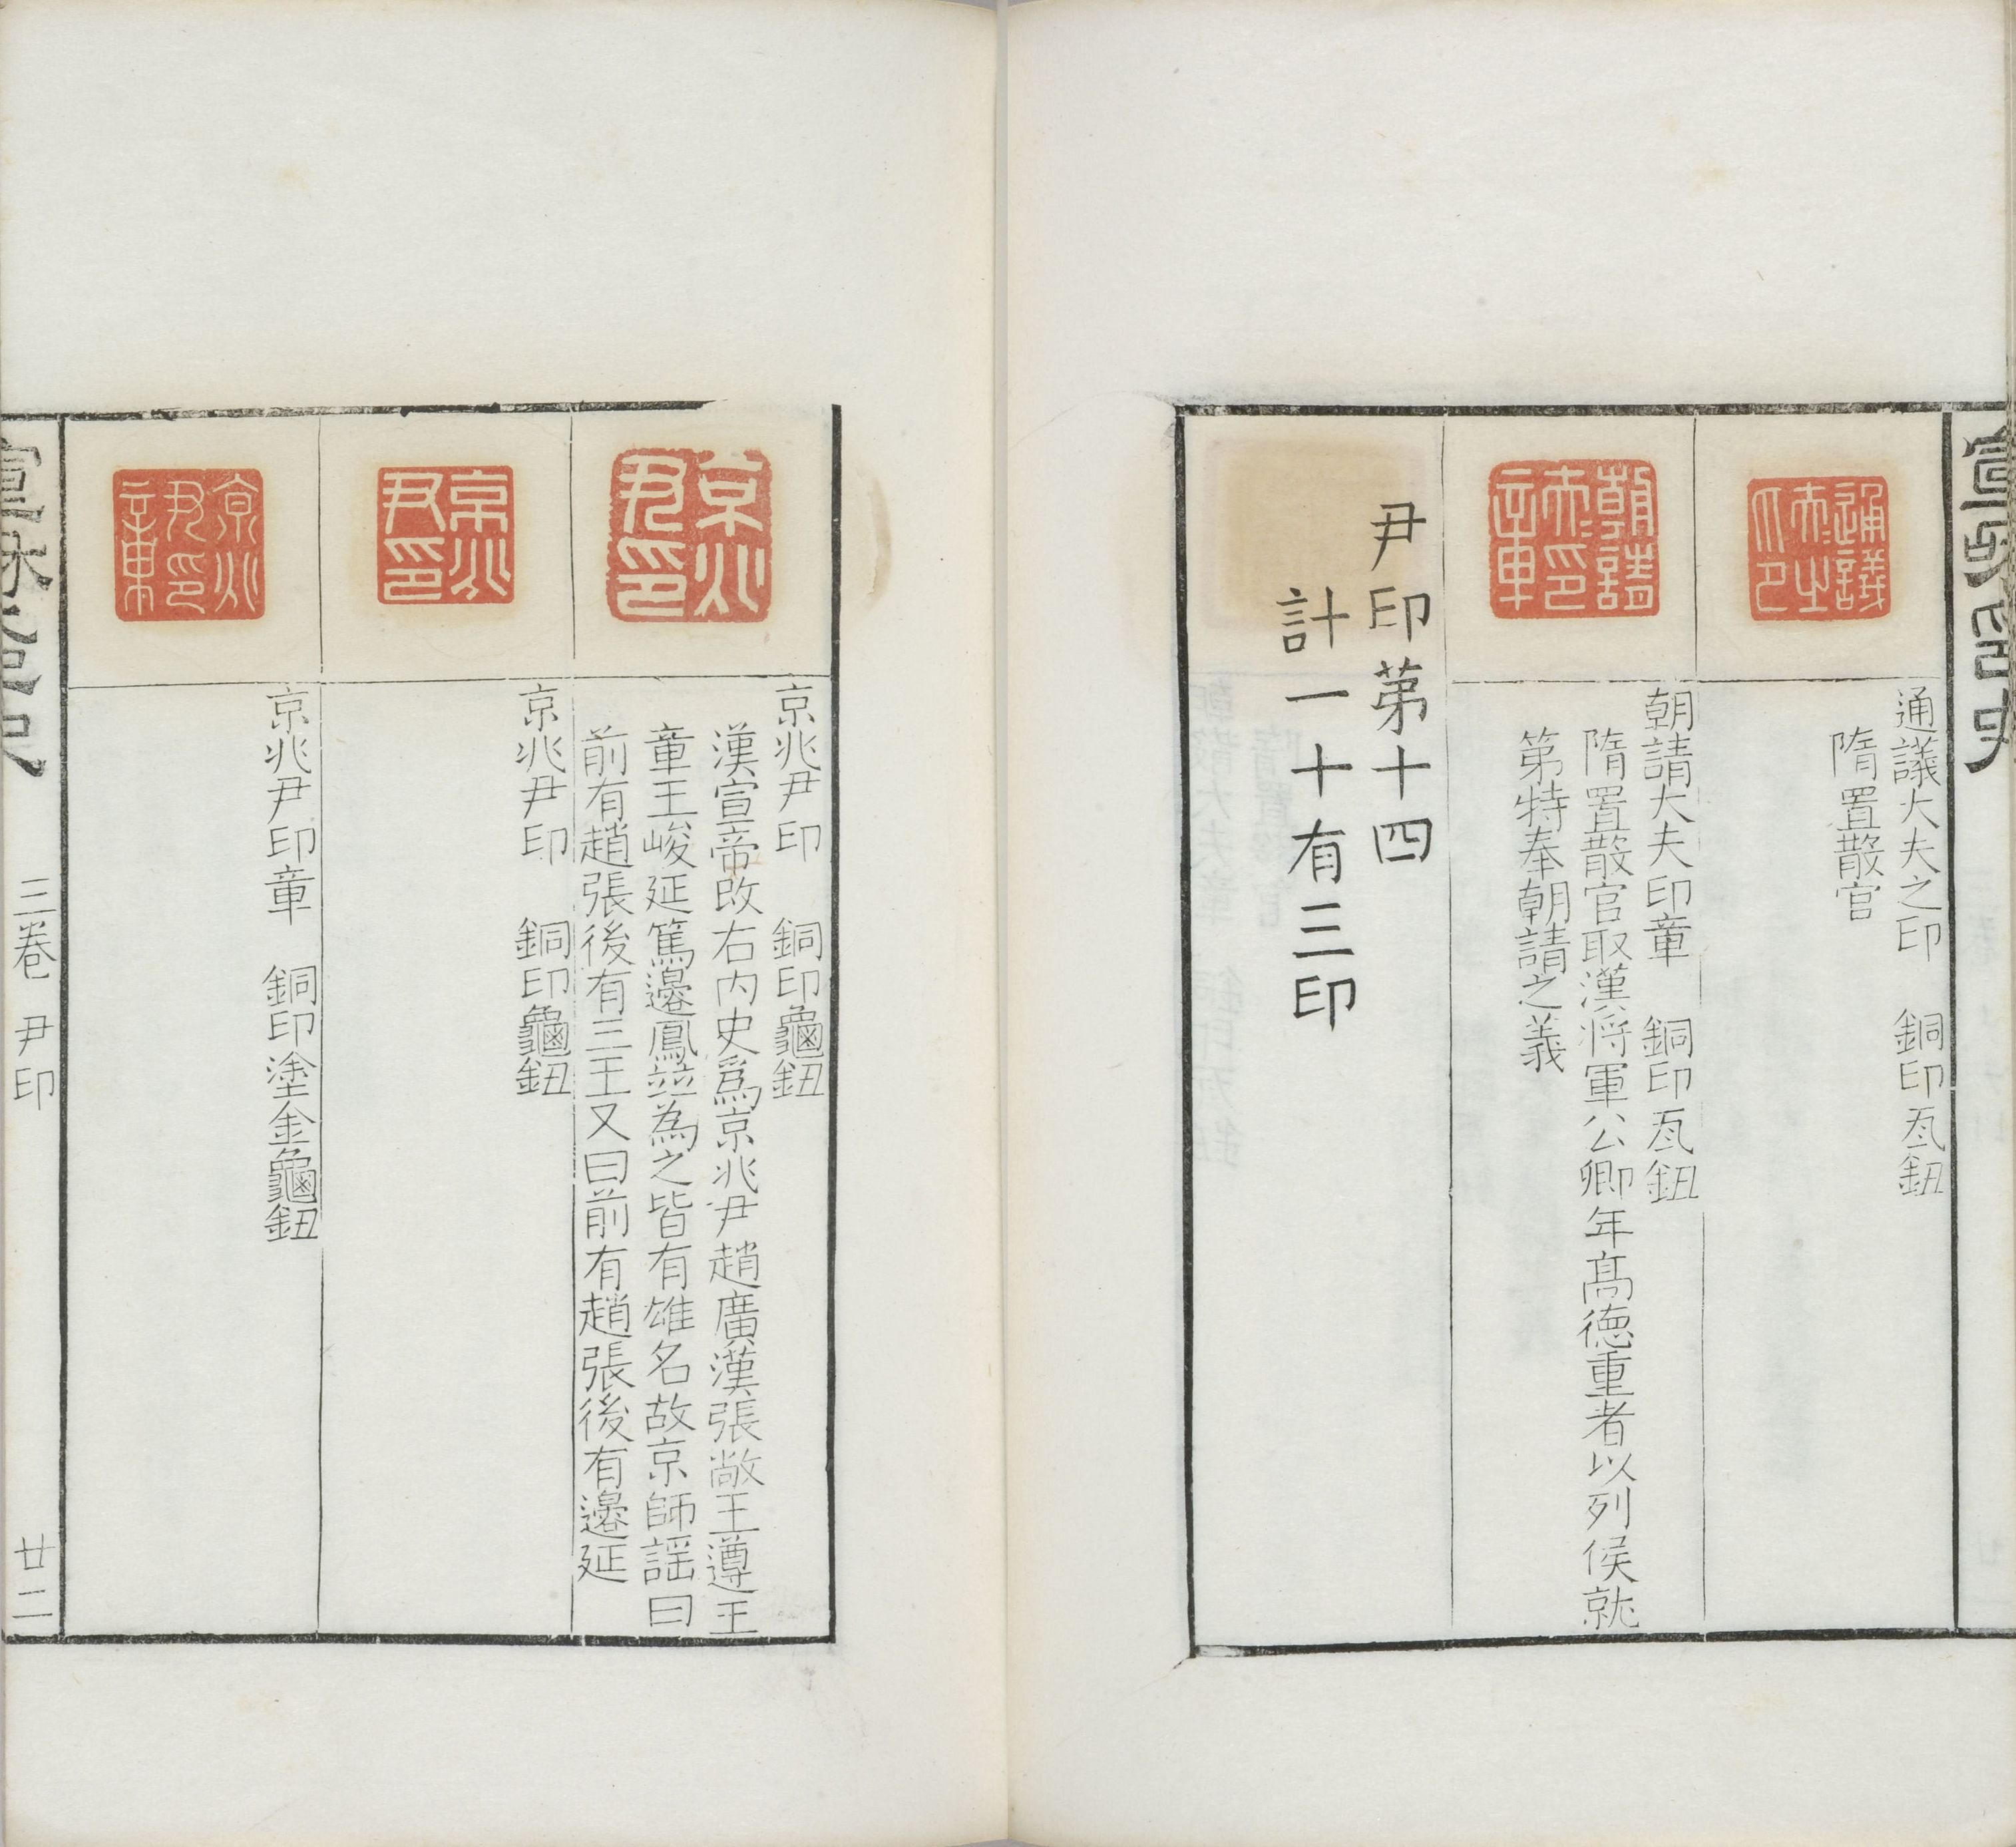 通議大夫之印　銅印瓦鈕
隋置散官
朝請大夫印章　銅印瓦鈕
隋置散官取漢將軍公卿年髙德重者以列侯就
第特奉朝請之義
尹印第十四
計一十有三印
京兆尹印　銅印龜鈕
漢宣帝改右內史爲京兆尹趙廣漢張敞王遵王
章王峻延篤邊鳳竝為之皆有雄名故京師謡曰
前有趙張後有三王又曰前有趙張後有邊延
京兆尹印　銅印龜鈕
京兆尹印章　銅印塗金龜鈕
三卷　尹印
廿二
通議大夫之印
朝請大夫印章
京兆尹印
京兆尹印
京兆尹印章